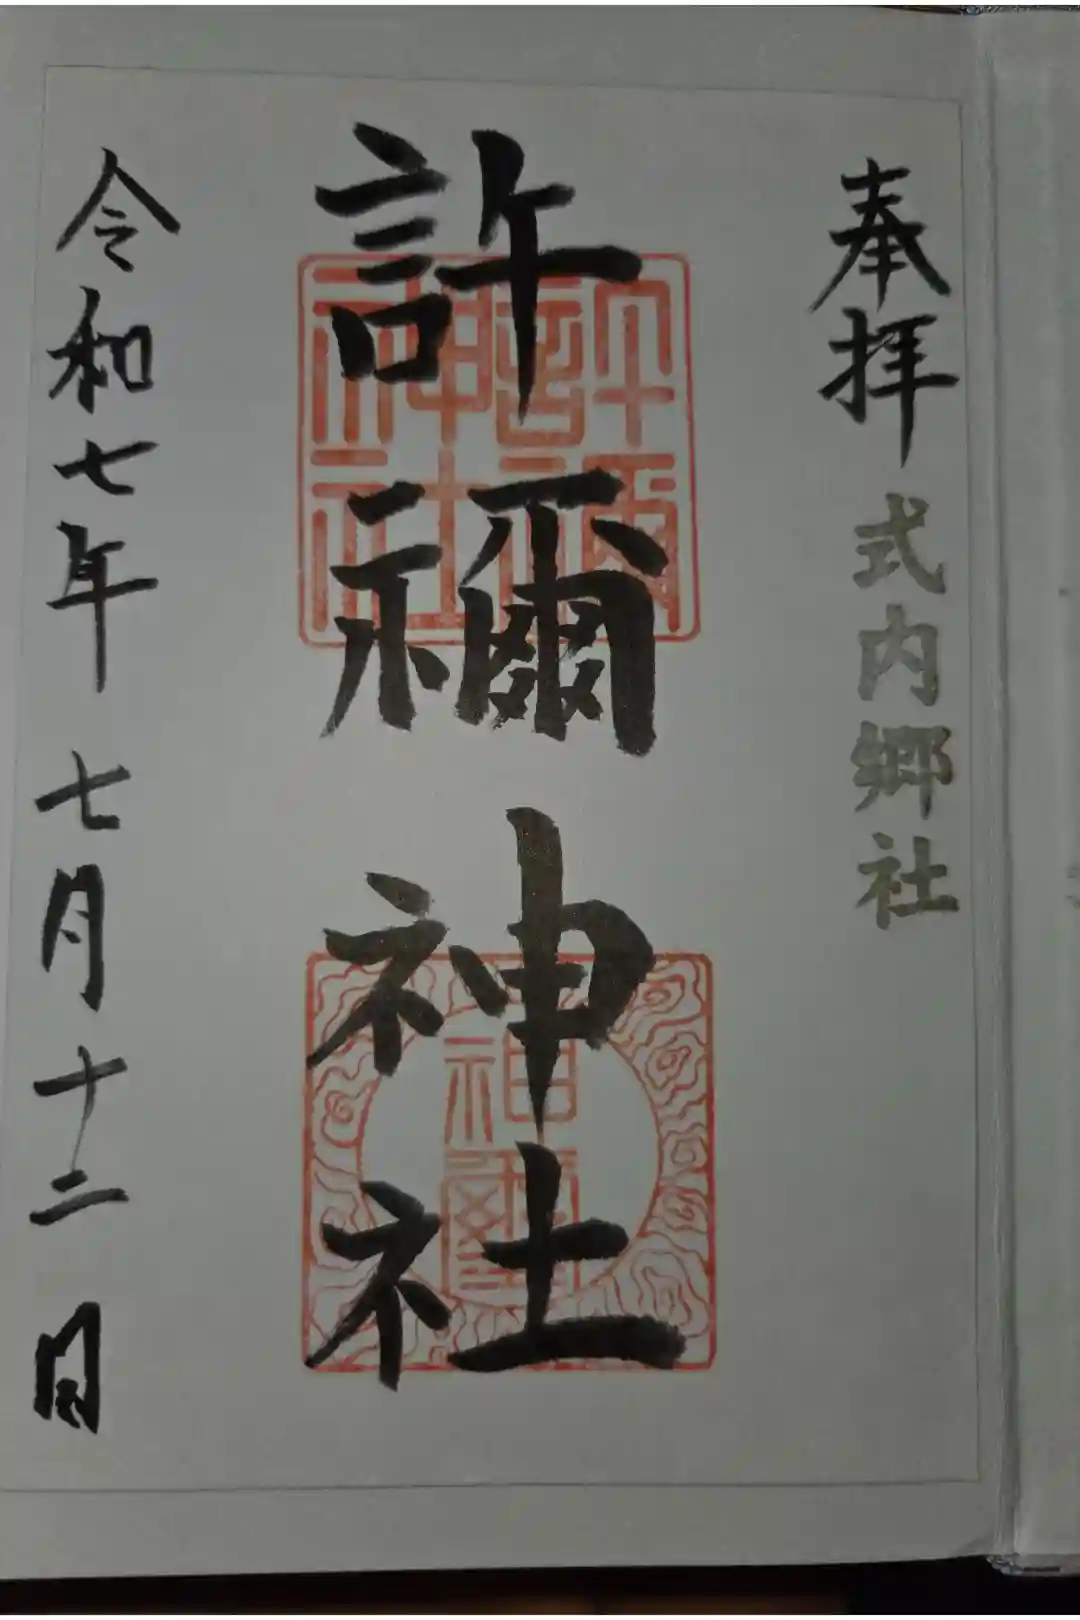 奉拝 式内郷社
許禰神社
許禰神社
神璽
令和七年 七月十二日